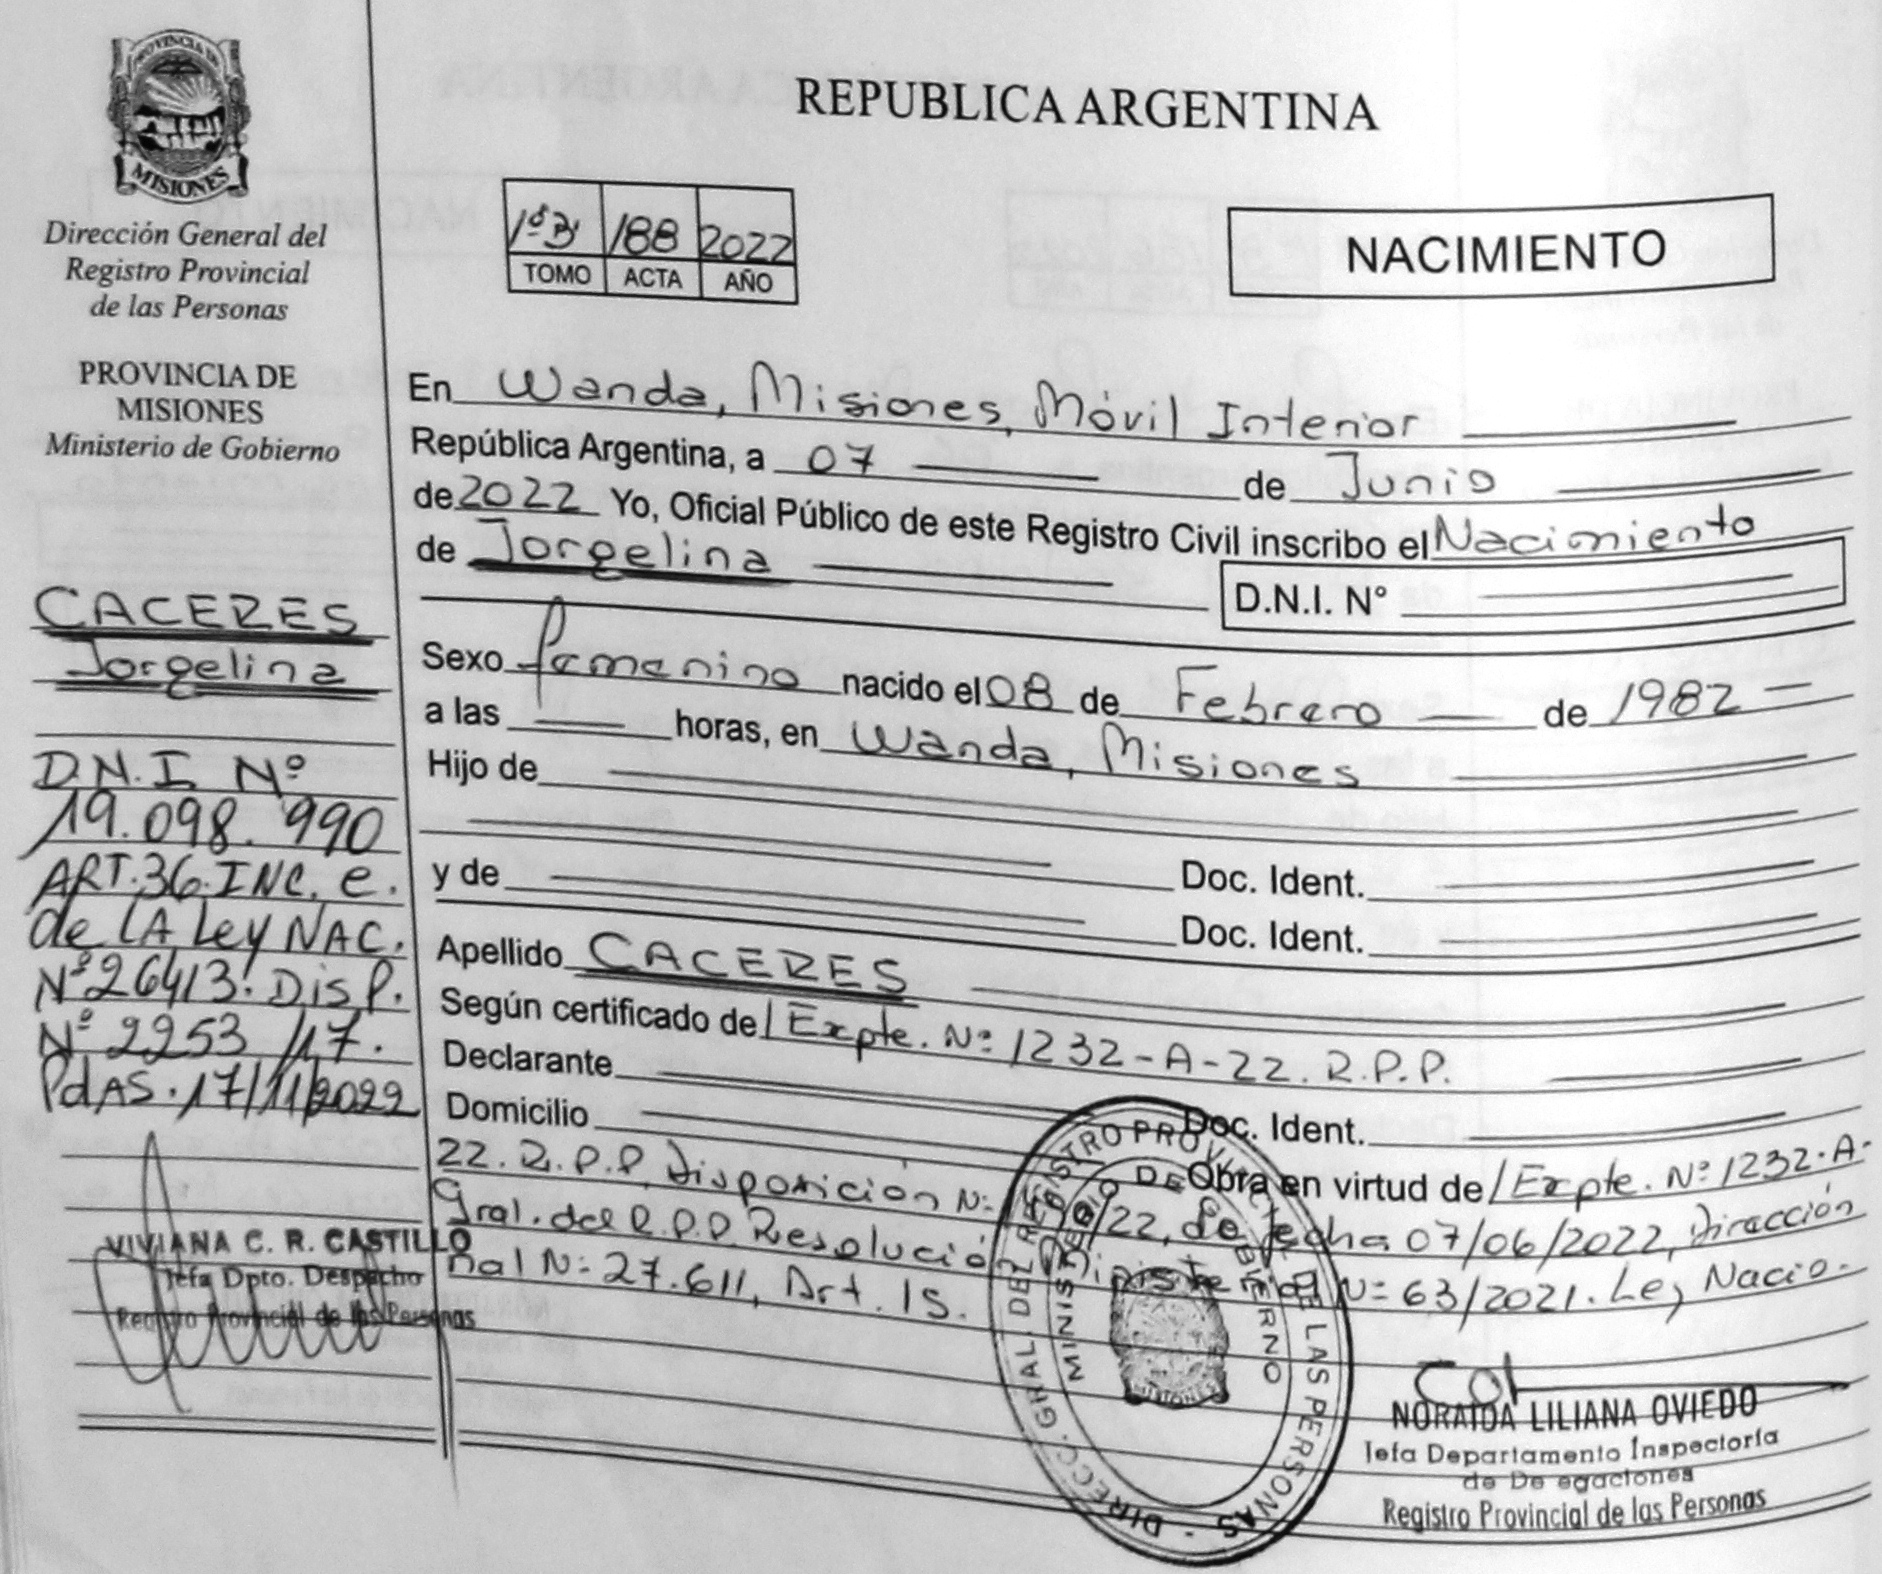 PROVINCIA DE
MISIONES
Dirección General del
Registro Provincial
de las Personas
PROVINCIA DE
MISIONES
Ministerio de Gobierno
CACERES
Jorgelina
D.N.I. Nº
19.098.990
ART.36.INC. e.
de LA Ley NAC.
Nº26413. DISP.
Nº 2253/17.
PdAS.17/11/2022
VIVIANA C. R. CASTILLO
Jefa Dpto. Despacho
Registro Provincial de las Personas
REPUBLICA ARGENTINA
188 2022
TOMO ACTA AÑO
NACIMIENTO
En Wanda, Misiones, Móvil Interior
República Argentina, a 07 de Junio
de 2022 Yo, Oficial Público de este Registro Civil inscribo el Nacimiento
de Jorgelina
D.N.I. N°
Sexo femenino nacido el 08 de Febrero de 1982
a las horas, en Wanda, Misiones
Hijo de
Doc. Ident.
y de
Doc. Ident.
Apellido CACERES
Según certificado de/Expte. Nº 1232-A-22. R.P.P.
Declarante
Doc. Ident.
Domicilio
Obra en virtud de/Expte. Nº 1232-A-
22. R.P.P, Disposición Nº /22, de fecha 07/06/2022, Dirección
Gral. del R.P.P. Resolución Ministerial Nº 63/2021. Ley Nacio-
nal Nº 27.611, Art. 15.
DIRECC. GRAL. DEL REGISTRO PROVINCIAL DE LAS PERSONAS
MINISTERIO DE GOBIERNO
MISIONES
NORAIDA LILIANA OVIEDO
Jefa Departamento Inspectoría
de De egaciones
Registro Provincial de las Personas